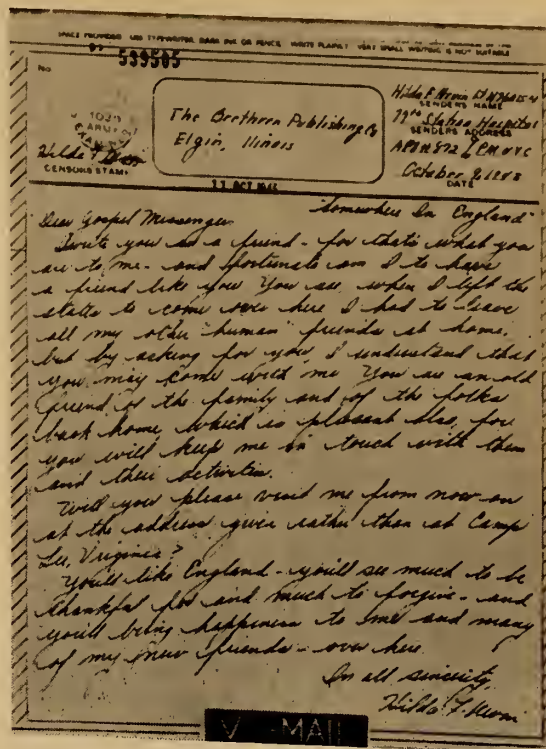 539505
No.
The Brethren Publishing Co
Elgin, Illinois
Hilda F.
SENDER'S NAME
79th Station Hospital
SENDER'S ADDRESS
APO # 572 % PM NYC
October 8, 1943
DATE
Hilda F.
CENSOR'S STAMP
11 OCT
"Somewhere In England"
Dear Gospel Messenger:
I write you as a friend - for that's what you
are to me - and fortunate am I to have
a friend like you. You see, when I left the
states to come over here I had to leave
all my other "human" friends at home,
but by asking for you, I understand that
you may come with me. You are an old
friend of the family and of the folks
back home, which is pleasant also, for
you will keep me in touch with them
and their activities.
Will you please visit me from now on
at the address given rather than at Camp
Lee, Virginia?
You'll like England - you'll see much to be
thankful for and much to forgive - and
you'll bring happiness to me and many
of my new friends - over here.
In all sincerity,
Hilda F.
V - MAIL